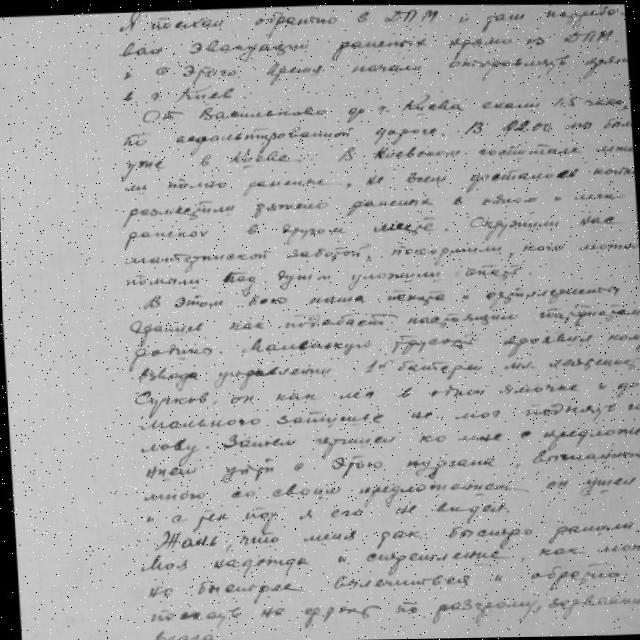 Я поехал обратно в ДПМ и там потребо
вал эвакуации раненых прямо из ДПМ
и с этого время начали отправлять прям
в г. Киев.
От Василькова до г. Киева ехали 1.5 часа,
по асфальтированной дороге. В 22.00 мы были
уже в Киеве. В Киевском госпитале
полно раненых, не всем досталось
разместили тяжело раненых в одном и
раненых в другом месте. Окружили нас
материнской заботой, покормили, кого можно
помыли под душем уложили спать.
В этом бою наша пехота и артиллеристы
дрались как подобает настоящим патриотам
родины. Маленькую трусость проявил ком
взвода управления 1й батареи мл. лейтенант
Сурков, он как лег в одной ямочке и до
мального затишья не мог поднять го
лову. Затем пришел ко мне с предложе
нием уйти с этого кургана,
мною со своим предложением он ушел
и с тех пор я его не видел.
Жаль, что меня так быстро ранили.
Моя надежда и стремление, как мож
но быстрее вылечиться и обратно
поехать на фронт по разгрому,
врага